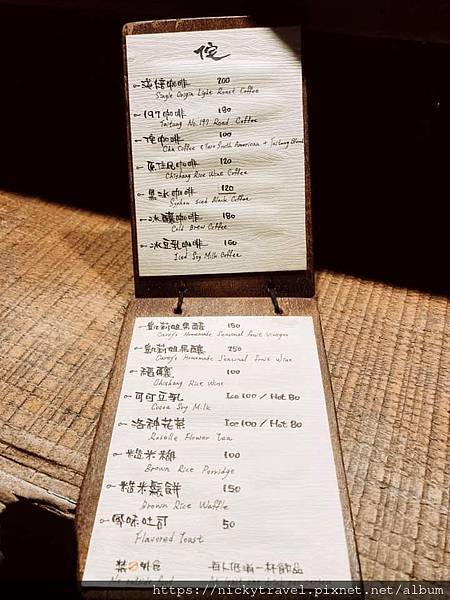 淺焙咖啡 200
Single Origin Light Roast Coffee
197咖啡 180
Taitung No.197 Road Coffee
咖啡 100
Cha Coffee South American + Taitung Blend
咖啡 120
Chishang Rice Wine Coffee
黑冰咖啡 120
Syphon iced Black Coffee
冰釀咖啡 180
Cold Brew Coffee
冰豆乳咖啡 160
Iced Soy Milk Coffee
凱莉姐果醋 150
Homemade Seasonal Fruit Vinegar
凱莉姐果釀 250
Homemade Seasonal Fruit Wine
100
Chishang Rice Wine
可可豆乳 Ice 100 / Hot 80
Cocoa Soy Milk
洛神花茶 Ice 100 / Hot 80
Roselle Flower Tea
糙米粥 100
Brown Rice Porridge
糙米鬆餅 150
Brown Rice Waffle
風味吐司 50
Flavored Toast
禁外食 每人低消一杯飲品
https://nickytravel.pixnet.net/album